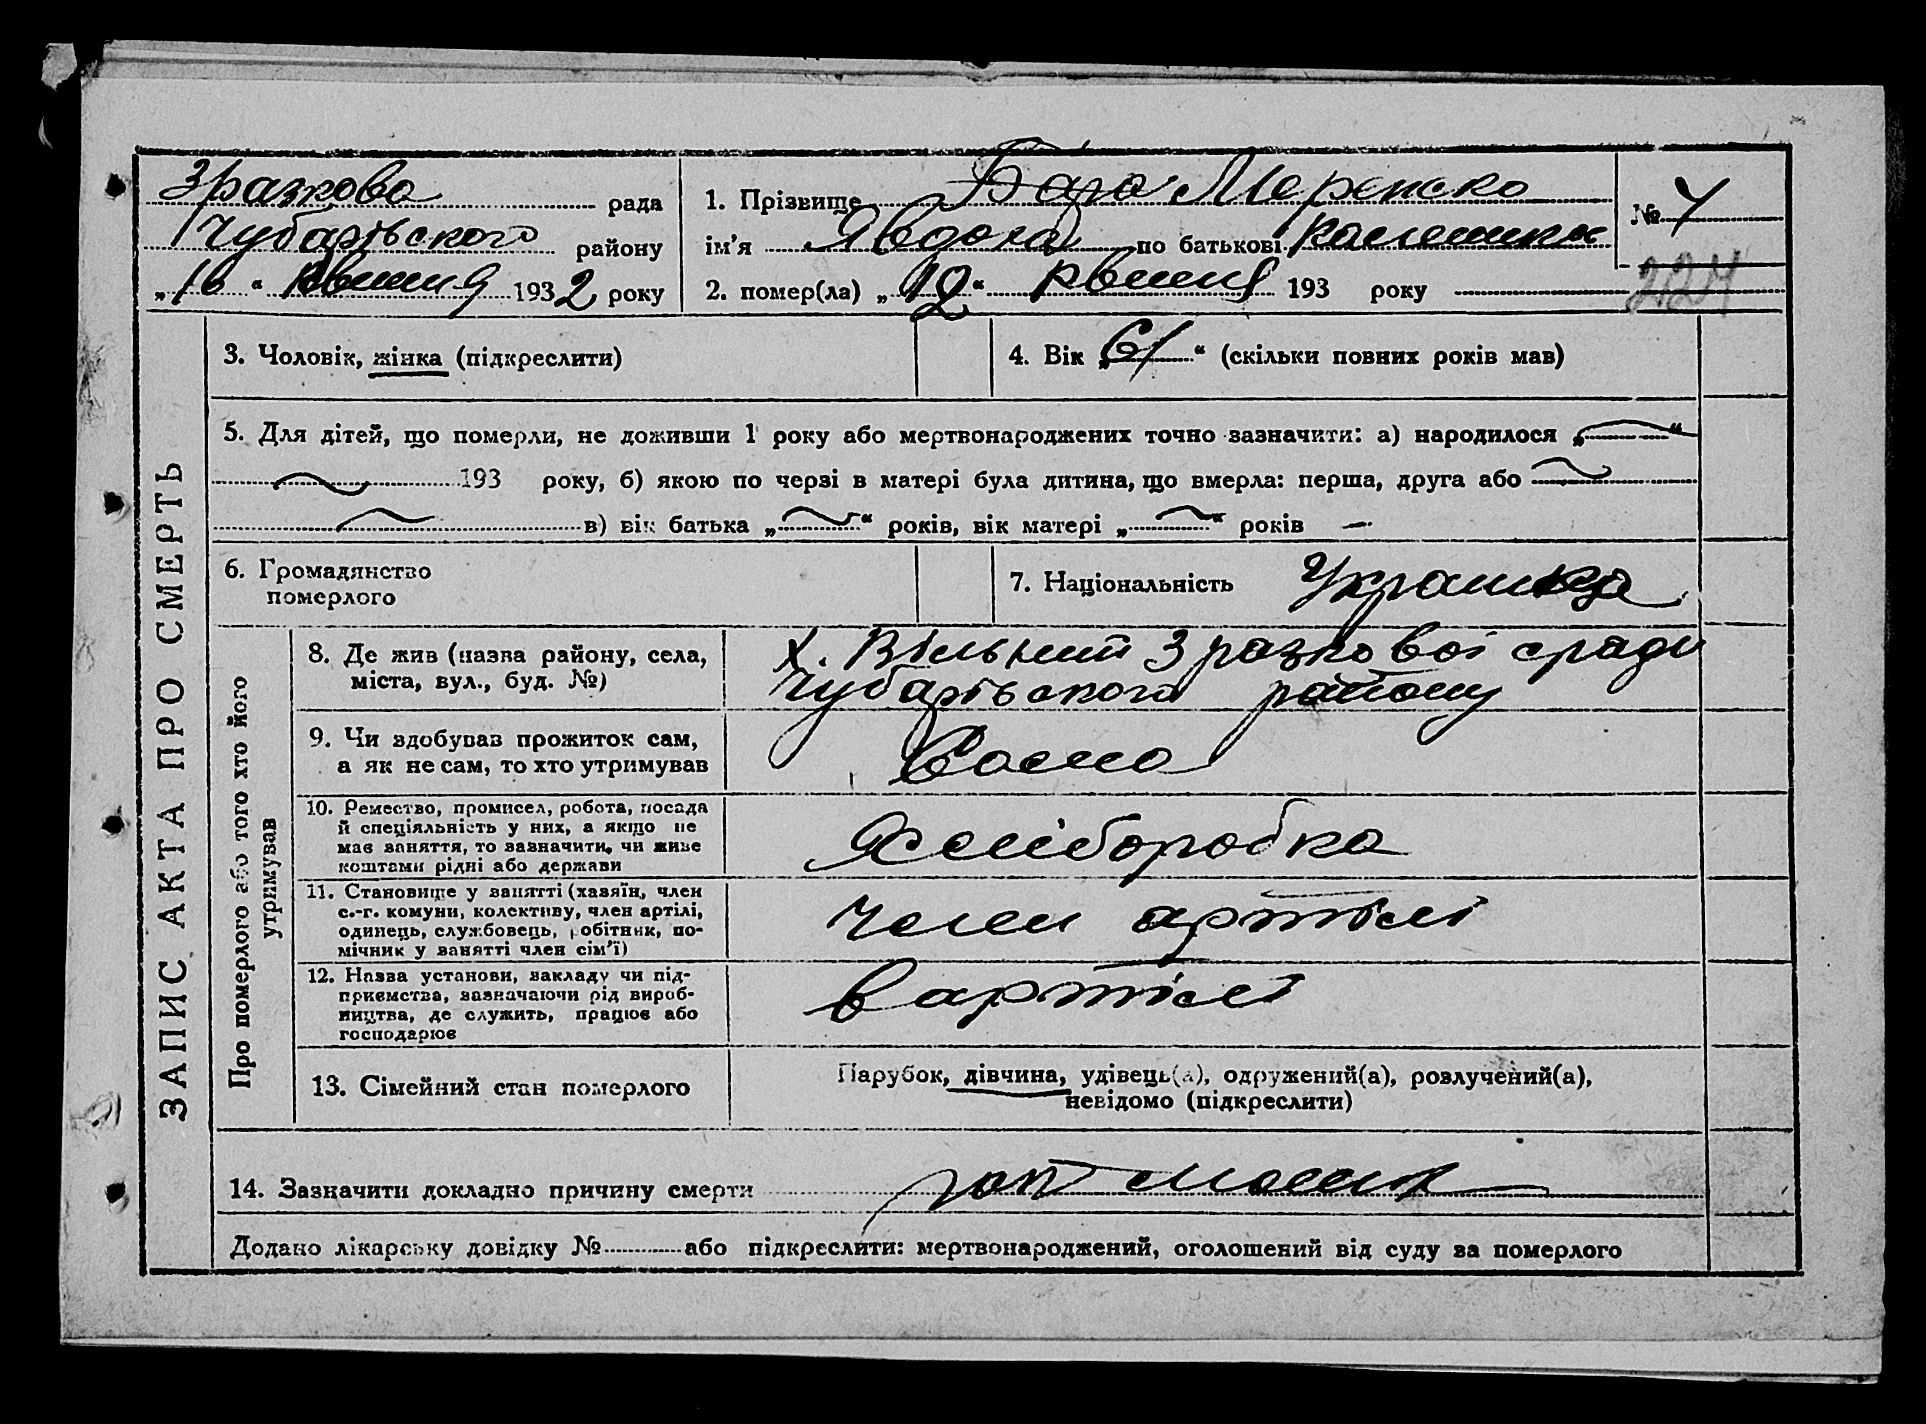 Зразкова рада
Чубарівського району
„16“ квітня 1932 року
1. Прізвище Мережко
ім'я Явдоха по батькові
2. помер(ла) „12“ квітня 193 року
№ 7
224
ЗАПИС АКТА ПРО СМЕРТЬ
3. Чоловік, жінка (підкреслити)
4. Вік „61“ (скільки повних років мав)
5. Для дітей, що померли, не доживши 1 року або мертвонароджених точно зазначити: а) народилося „ “
193 року, б) якою по черзі в матері була дитина, що вмерла: перша, друга або
в) вік батька „ “ років, вік матері „ “ років —
6. Громадянство
померлого
7. Національність Українка
Про померлого або того хто його
утримував
8. Де жив (назва району, села,
міста, вул., буд. №)
х. Вільний Зразкової сради
Чубарівського району
9. Чи здобував прожиток сам,
а як не сам, то хто утримував
Сама
10. Ремество, промисел, робота, посада
й спеціяльність у них, а якщо не
має заняття, то зазначити, чи живе
коштами рідні або держави
Хліборобка
11. Становище у занятті (хазяїн, член
с.-г. комуни, колективу, член артілі,
одинець, службовець, робітник, по-
мічник у занятті член сім'ї)
член артілі
12. Назва установи, закладу чи під-
приємства, зазначаючи рід вироб-
ництва, де служить, працює або
господарює
в артілі
13. Сімейний стан померлого
Парубок, дівчина, удівець(а), одружений(а), розлучений(а),
невідомо (підкреслити)
14. Зазначити докладно причину смерти
Додано лікарську довідку № або підкреслити: мертвонароджений, оголошений від суду за померлого